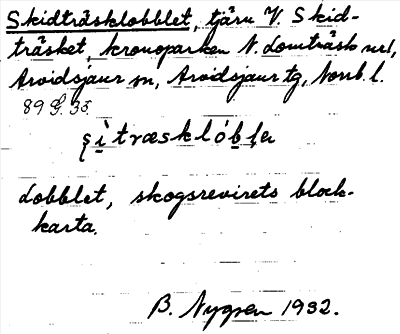 Skidträsklobblet, tjärn V. Skid-
träsket, kronoparken N. Lomträsk nr 1,
Arvidsjaur sn, Arvidsjaur tg, Norrb. l.
89 G. 35.
lobblet, skogsrevirets block-
karta.
B. Nygren 1932.